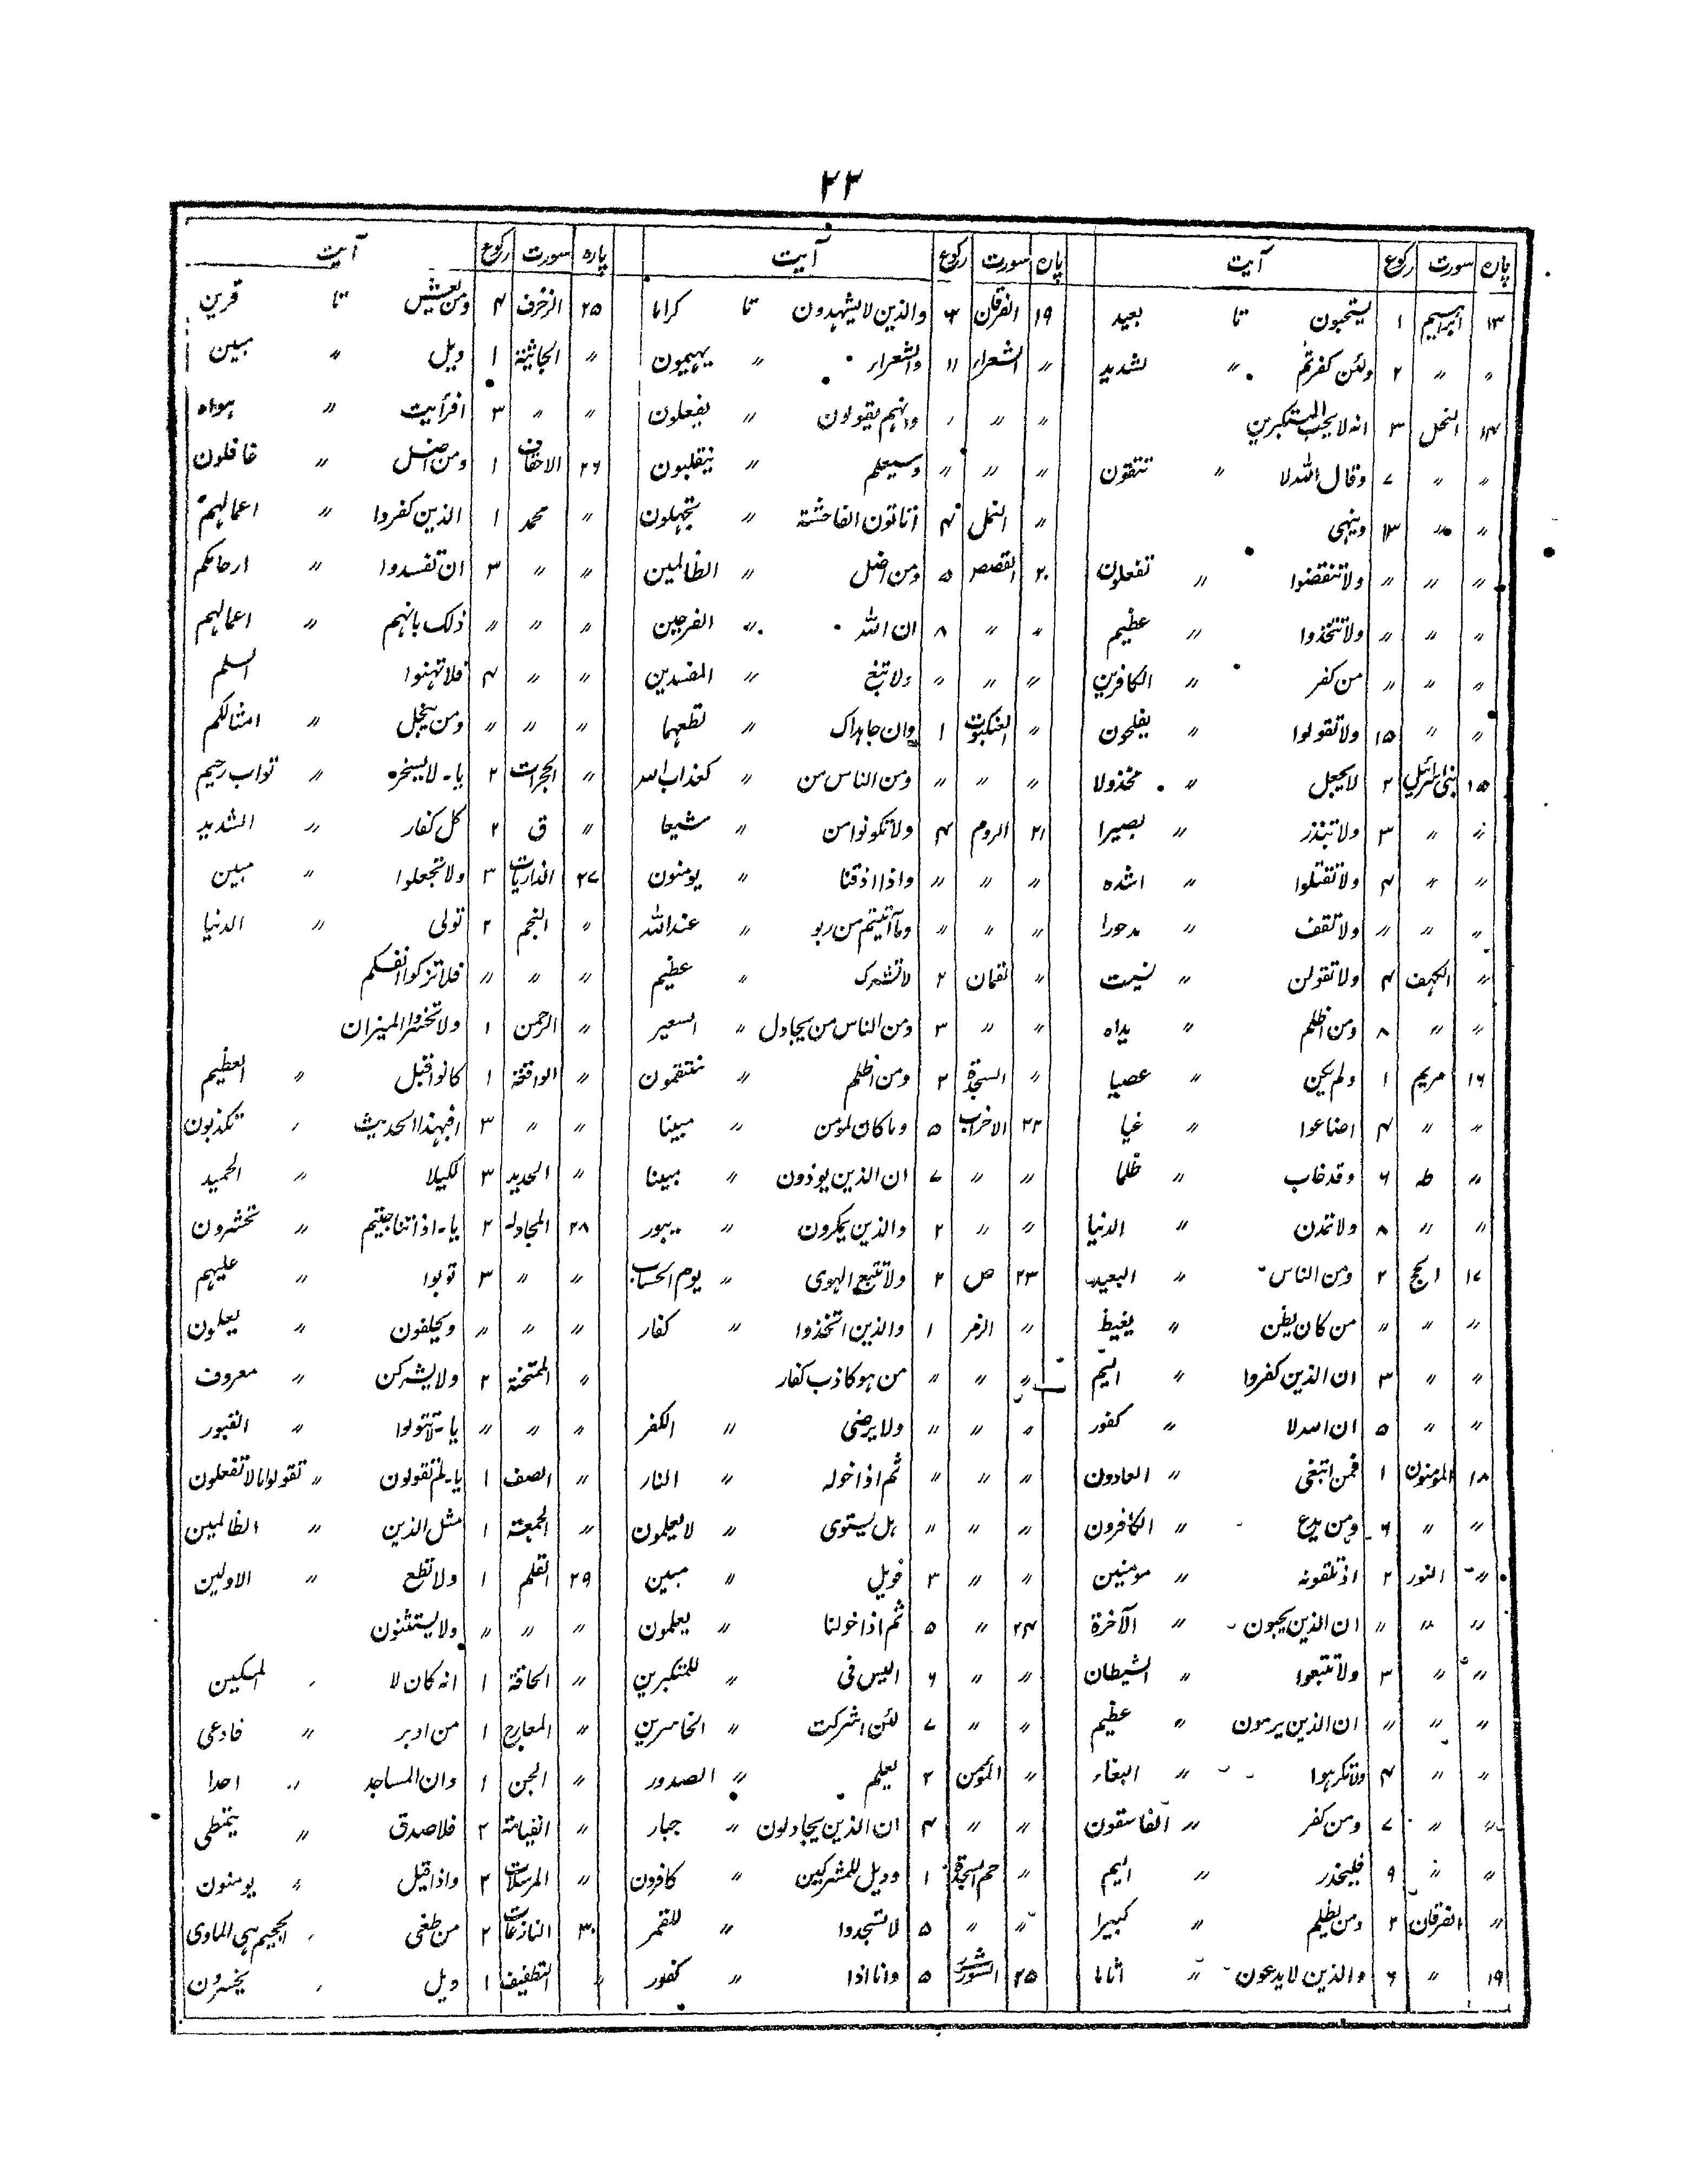 ۲۳
پارہ سورت رکوع آیت
۱۳ ابراہیم ۱ یستحبون تا بعید
〃 〃 ۲ ولئن کفرتم 〃 لشدید
۱۴ النحل ۳ انہ لا یحب المستکبرین
〃 〃 ۷ وقال اللہ لا 〃 تتقون
〃 〃 ۱۳ وینہی
〃 〃 〃 ولا تنقضوا 〃 تفعلون
〃 〃 〃 ولا تتخذوا 〃 عظیم
〃 〃 〃 من کفر 〃 الکافرین
〃 〃 ۱۵ ولا تقولوا 〃 یفلحون
۱۵ بنی اسرائیل ۲ لا یجعل 〃 مخذولا
〃 〃 ۳ ولا تبذر 〃 بصیرا
〃 〃 ۴ ولا تقتلوا 〃 اشدہ
〃 〃 〃 ولا تقف 〃 مدحورا
〃 الکہف ۴ ولا تقولن 〃 نسیت
〃 〃 ۸ ومن اظلم 〃 یداہ
۱۶ مریم ۱ ولم یکن 〃 عصیا
〃 〃 ۴ اضاعوا 〃 غیا
〃 طہ ۶ وقد خاب 〃 ظلما
〃 〃 ۸ ولا تمدن 〃 الدنیا
۱۷ الحج ۲ ومن الناس 〃 البعید
〃 〃 〃 من کان یظن 〃 یغیظ
〃 〃 ۳ ان الذین کفروا 〃 الیم
〃 〃 ۵ ان اللہ لا 〃 کفور
۱۸ المومنون ۱ فمن ابتغی 〃 العادون
〃 〃 ۶ ومن یدع 〃 الکافرون
〃 النور ۲ اذ تلقونہ 〃 مومنین
〃 〃 〃 ان الذین یحبون 〃 الآخرة
〃 〃 ۳ ولا تتبعوا 〃 الشیطان
〃 〃 〃 ان الذین یرمون 〃 عظیم
〃 〃 ۴ ولا تکرہوا 〃 البغاء
〃 〃 ۷ ومن کفر 〃 الفاسقون
〃 〃 ۹ فلیحذر 〃 الیم
〃 الفرقان ۲ ومن یظلم 〃 کبیرا
۱۹ 〃 ۶ والذین لا یدعون 〃 اثاما
پارہ سورت رکوع آیت
۱۹ الفرقان ۶ والذین لا یشہدون تا کراما
〃 الشعراء ۱۱ والشعراء 〃 یہیمون
〃 〃 〃 وانہم یقولون 〃 یفعلون
〃 〃 〃 وسیعلم 〃 ینقلبون
〃 النمل ۴ أتاتون الفاحشة 〃 تجہلون
۲۰ القصص ۵ ومن اضل 〃 الظالمین
〃 〃 ۸ ان اللہ 〃 الفرحین
〃 〃 〃 ولا تبغ 〃 المفسدین
〃 العنکبوت ۱ وان جاہداک 〃 تطعہما
〃 〃 〃 ومن الناس من 〃 کعذاب اللہ
۲۱ الروم ۴ ولا تکونوا من 〃 شیعا
〃 〃 〃 واذا اذقنا 〃 یومنون
〃 〃 〃 وما آتیتم من ربو 〃 عند اللہ
〃 لقمان ۲ لا تشرک 〃 عظیم
〃 〃 ۳ ومن الناس من یجادل 〃 السعیر
〃 السجدة ۲ ومن اظلم 〃 منتقمون
۲۲ الاحزاب ۵ وما کان لمومن 〃 مبینا
〃 〃 ۷ ان الذین یوذون 〃 مبینا
〃 〃 ۲ والذین یمکرون 〃 یبور
۲۳ ص ۲ ولا تتبع الہوی 〃 یوم الحساب
〃 الزمر ۱ والذین اتخذوا 〃 کفار
〃 〃 〃 من ہو کاذب کفار
〃 〃 〃 ولا یرضی 〃 الکفر
〃 〃 〃 ثم اذا خولہ 〃 النار
〃 〃 〃 ہل یستوی 〃 لا یعلمون
〃 〃 ۳ فویل 〃 مبین
۲۴ 〃 ۵ ثم اذا خولنا 〃 یعلمون
〃 〃 ۶ الیس فی 〃 للمتکبرین
〃 〃 ۷ لئن اشرکت 〃 الخاسرین
〃 المؤمن ۲ یعلم 〃 الصدور
〃 〃 ۴ ان الذین یجادلون 〃 جبار
〃 حم السجدة ۱ وویل للمشرکین 〃 کافرون
〃 〃 ۵ لا تسجدوا 〃 للقمر
۲۵ الشوریٰ ۵ وانا اذا 〃 کفور
پارہ سورت رکوع آیت
۲۵ الزخرف ۴ ومن یعش تا قرین
〃 الجاثیة ۱ ویل 〃 مبین
〃 〃 ۳ افرأیت 〃 ہواہ
۲۶ الاحقاف ۱ ومن اضل 〃 غافلون
〃 محمد ۱ الذین کفروا 〃 اعمالہم
〃 〃 ۳ ان تفسدوا 〃 ارحامکم
〃 〃 〃 ذلک بانہم 〃 اعمالہم
〃 〃 ۴ فلا تہنوا السلم
〃 〃 〃 ومن یبخل 〃 امثالکم
〃 الحجرات ۲ یا۔ لا یسخر 〃 تواب رحیم
〃 ق ۲ کل کفار 〃 الشدید
۲۷ الذاریات ۳ ولا تجعلوا 〃 مبین
〃 النجم ۲ تولی 〃 الدنیا
〃 〃 〃 فلا تزکوا انفسکم
〃 الرحمن ۱ ولا تخسروا المیزان
〃 الواقعة ۱ کانوا قبل 〃 العظیم
〃 〃 ۳ افبہذا الحدیث 〃 تکذبون
〃 الحدید ۳ لکیلا 〃 الحمید
۲۸ المجادلہ ۲ یا۔ اذا تناجیتم 〃 تحشرون
〃 〃 ۳ تولوا 〃 علیہم
〃 〃 〃 ویحلفون 〃 یعملون
〃 الممتحنة ۲ ولا یشرکن 〃 معروف
〃 〃 〃 یا۔ لا تتولوا 〃 القبور
〃 الصف ۱ یا۔ لم تقولون 〃 تقولوا مالا تفعلون
〃 الجمعة ۱ مثل الذین 〃 الظالمین
۲۹ القلم ۱ ولا تطع 〃 الاولین
〃 〃 〃 ولا یستثنون
〃 الحاقة ۱ انہ کان لا 〃 المسکین
〃 المعارج ۱ من ادبر 〃 فاوعی
〃 الجن ۱ وان المساجد 〃 احدا
〃 القیامة ۲ فلا صدق 〃 یتمطی
〃 المرسلات ۲ واذا قیل 〃 یومنون
۳۰ النازعات ۲ من طغی 〃 الجحیم ہی الماوی
〃 التطفیف ۱ ویل 〃 یخسرون